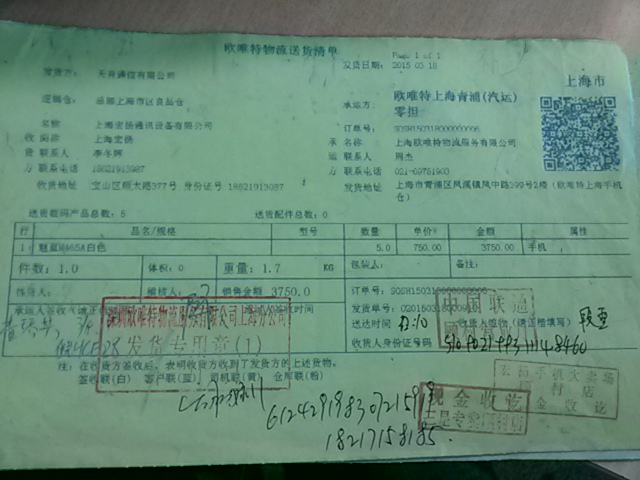 欧唯特物流送货清单
Page 1 of 1
发货方： 天音通信有限公司
发货日期： 2015 03 18
上海市
逻辑仓： 总部上海市区良品仓
承运方： 欧唯特上海青浦(汽运)
零担
名称 上海宏扬通讯设备有限公司
订单号： SQSH150318000000006
收 简称 上海宏扬
承 名称： 上海欧唯特物流服务有限公司
货 联系人 李冬晖
运 联系人 周杰
方 联系电话 18621913987
方 联系电话 021-69761903
收货地址 宝山区顾太路377号 身份证号 18621913987
收货地址 上海市青浦区凤溪镇凤中路399号2楼（欧唯特上海手机仓）
送货数码产品总数：5 送货配件总数：0
行 品名/规格 型号 数量 单价 金额 属性
1 魅蓝M465A白色 5.0 750.00 3750.00 手机
件数：1.0 体积：0 重量：1.7 KG 包装人： 备注：
销售金额 3750.0
订单号：
发货单号：
送达时间
收货人签收(请正楷填写)
收货人身份证号码
深圳欧唯特物流服务有限公司上海分公司
发货专用章(1)
中国联通
注：在收货方签收后，表明收货方收到了发货方的上述货物。
签收联(白) 客户联(蓝) 司机联(黄) 仓库联(粉)
现金收讫
612429198307215999
18217158185